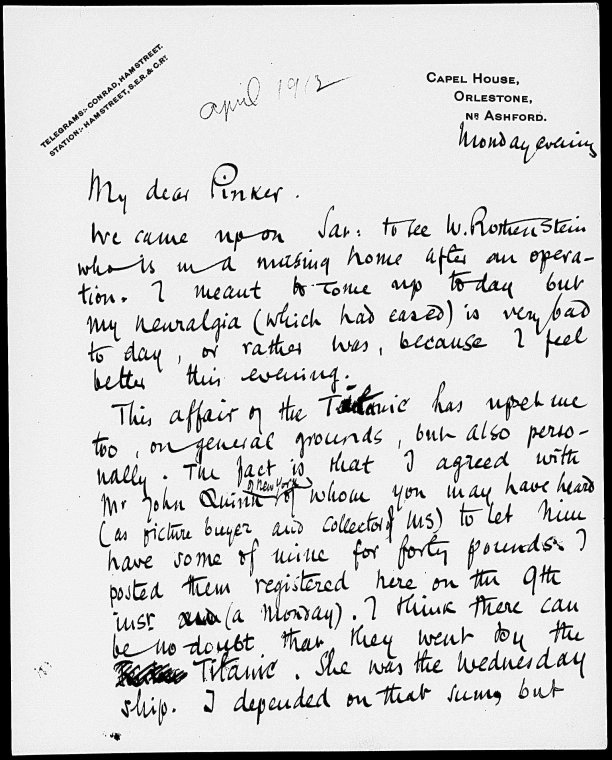 TELEGRAMS:- CONRAD, HAMSTREET.
STATION:- HAMSTREET, S.E.R. & C.RY
april 1912
CAPEL HOUSE,
ORLESTONE,
NR ASHFORD.
Monday evening
My dear Pinker.
We came up on Sat: to see W. Rothenstein
who is in a nursing home after an opera-
tion. I meant to come up to day but
my neuralgia (which had eased) is very bad
to day, or rather was, because I feel
better this evening.
This affair of the Titanic has upset me
too, on general grounds, but also perso-
nally. The fact is that I agreed with
Mr John Quinn (of New York) of whom you may have heard
(as picture buyer and collector of MS) to let him
have some of mine for forty pounds. I
posted them registered here on the 9th
inst (a Monday). I think there can
be no doubt that they went by the
Titanic. She was the Wednesday
ship. I depended on that sum, but